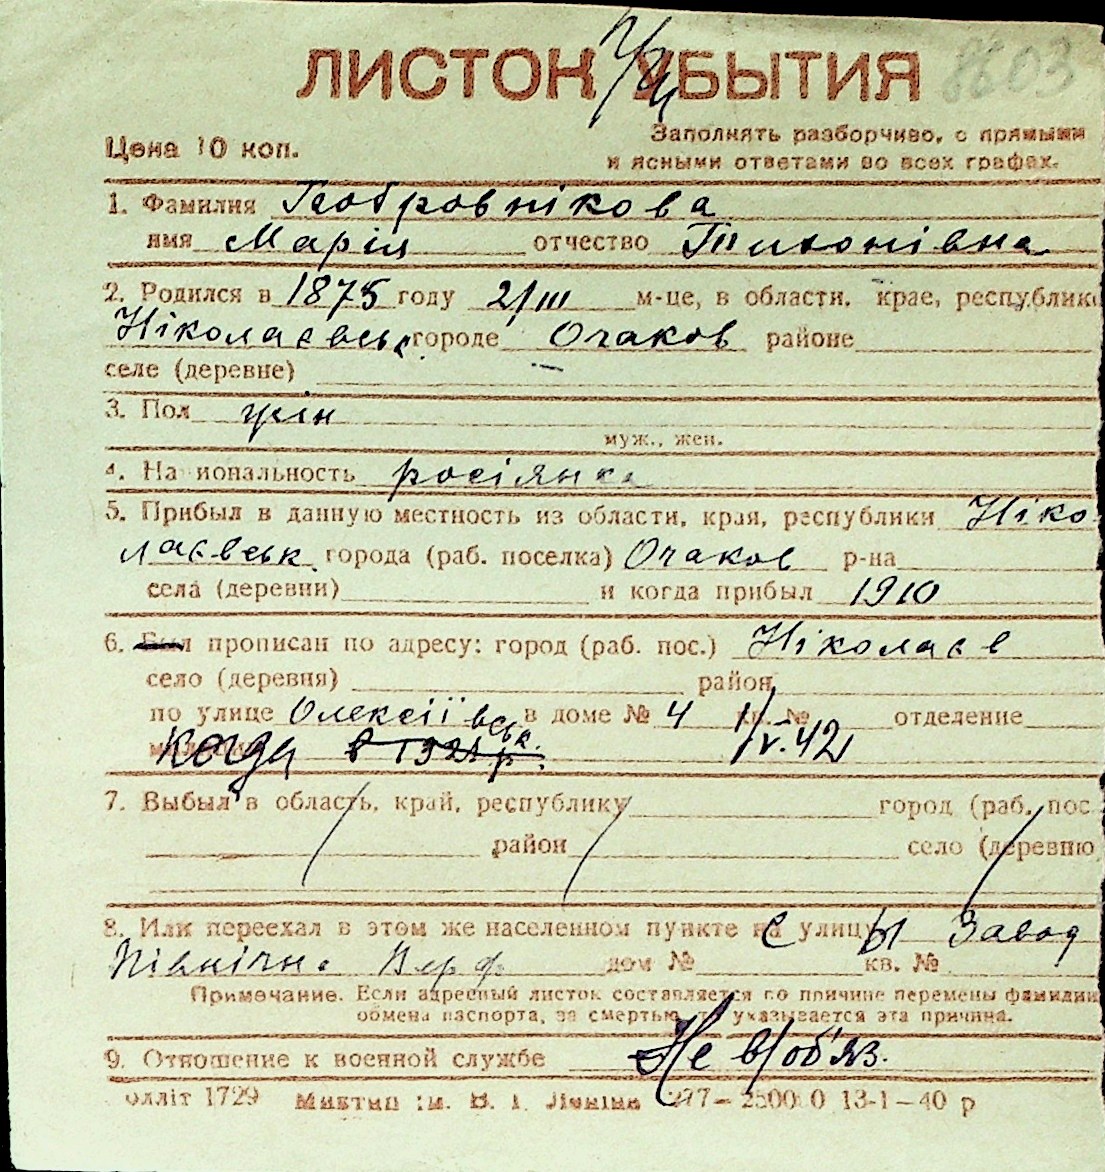 ЛИСТОК УБЫТИЯ 8603
Цена 10 коп.
Заполнять разборчиво, с прямыми
и ясными ответами во всех графах.
1. Фамилия
имя Марія отчество Тихонівна
2. Родился в 1875 году 2/III м-це, в области, крае, республике
Ніколаєвськ. городе Очаков районе
селе (деревне) —
3. Пол жін
муж., жен.
4. На иональность росіянка
5. Прибыл в данную местность из области, края, республики Ніко
лаєвськ. города (раб. поселка) Очаков р-на
села (деревни) и когда прибыл 1910
6. Был прописан по адресу: город (раб. пос.) Ніколаєв
село (деревня) район
по улице Олексіївськ. в доме № 4 кв. № отделение
когда в 1921 р. 1/V.42
7. Выбыл в область, край, республику город (раб. пос.
район село (деревню
8. Или переехал в этом же населенном пункте с улицы Завод
Північна Верф дом № кв. №
Примечание. Если адресный листок составляется по причине перемены фамилии
обмена паспорта, за смертью, то указывается эта причина.
9. Отношение к военной службе Не в/об'яз.
олліт 1729 Миктип ім. В. І. Леніна 13-1-40 р